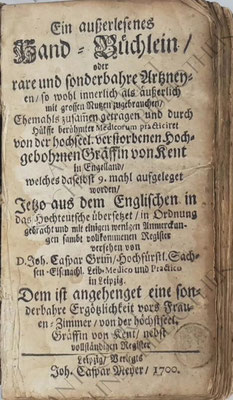 Ein außerlesenes
Hand-Büchlein/
oder
rare und sonderbahre Artzney-
en/ so wohl innerlich als äußerlich
mit grossen Nutzen zugebrauchen/
Ehemahls zusamen getragen und durch
Hülffe berühmter Medicorum practiciret
von der hochseel. verstorbenen Hoch-
gebohrnen Gräffin von Kent
in Engelland/
welches daselbst 9. mahl auffgeleget
worden/
Jetzo aus dem Englischen in
das Hochteutsche übersetzet/ in Ordnung
gebracht und mit einigen wenigen Anmerckun-
gen sambt vollkommenen Register
versehen von
D. Joh. Caspar Grün/ Hochfürstl. Sach-
sen-Eis. nachl. Leib-Medico und Practico
in Leipzig.
Dem ist angehenget eine son-
derbahre Ergötzligkeit vors Frau-
en-Zimmer/ von der höchstseel.
Gräffin von Kent/ nebst
vollständigen Register
Leipzig/ Verlegts
Joh. Caspar Meyer/ 1700.